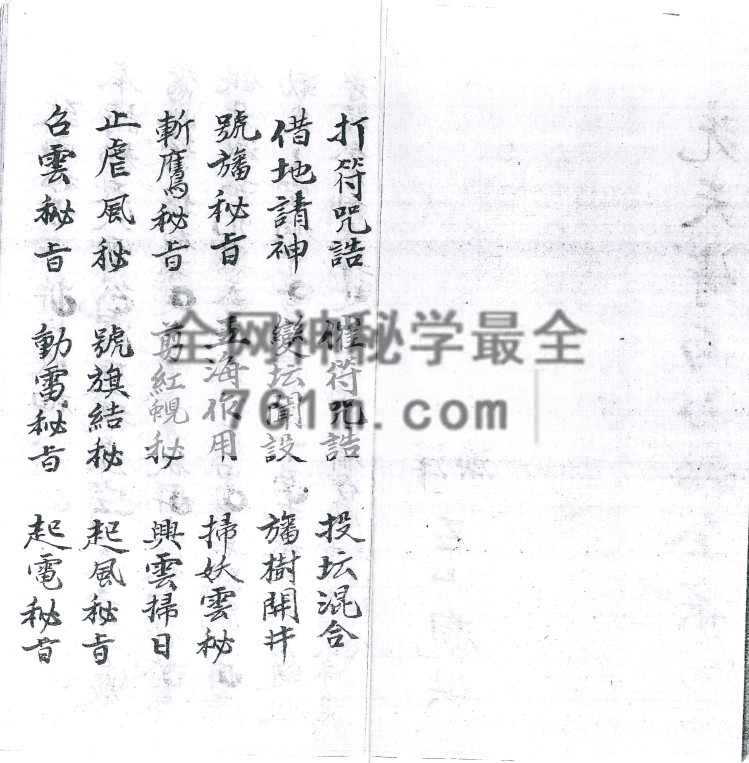 打符咒誥 催符咒誥 投坛混合
借地請神 變坛開設 旛樹開井
號旛秘旨 五海作用 掃妖雲秘
斬鷹秘旨 剪紅蜺秘 興雲掃日
止虐風秘 號旗結秘 起風秘旨
召雲秘旨 動雷秘旨 起電秘旨
全网神秘学最全
761n.com